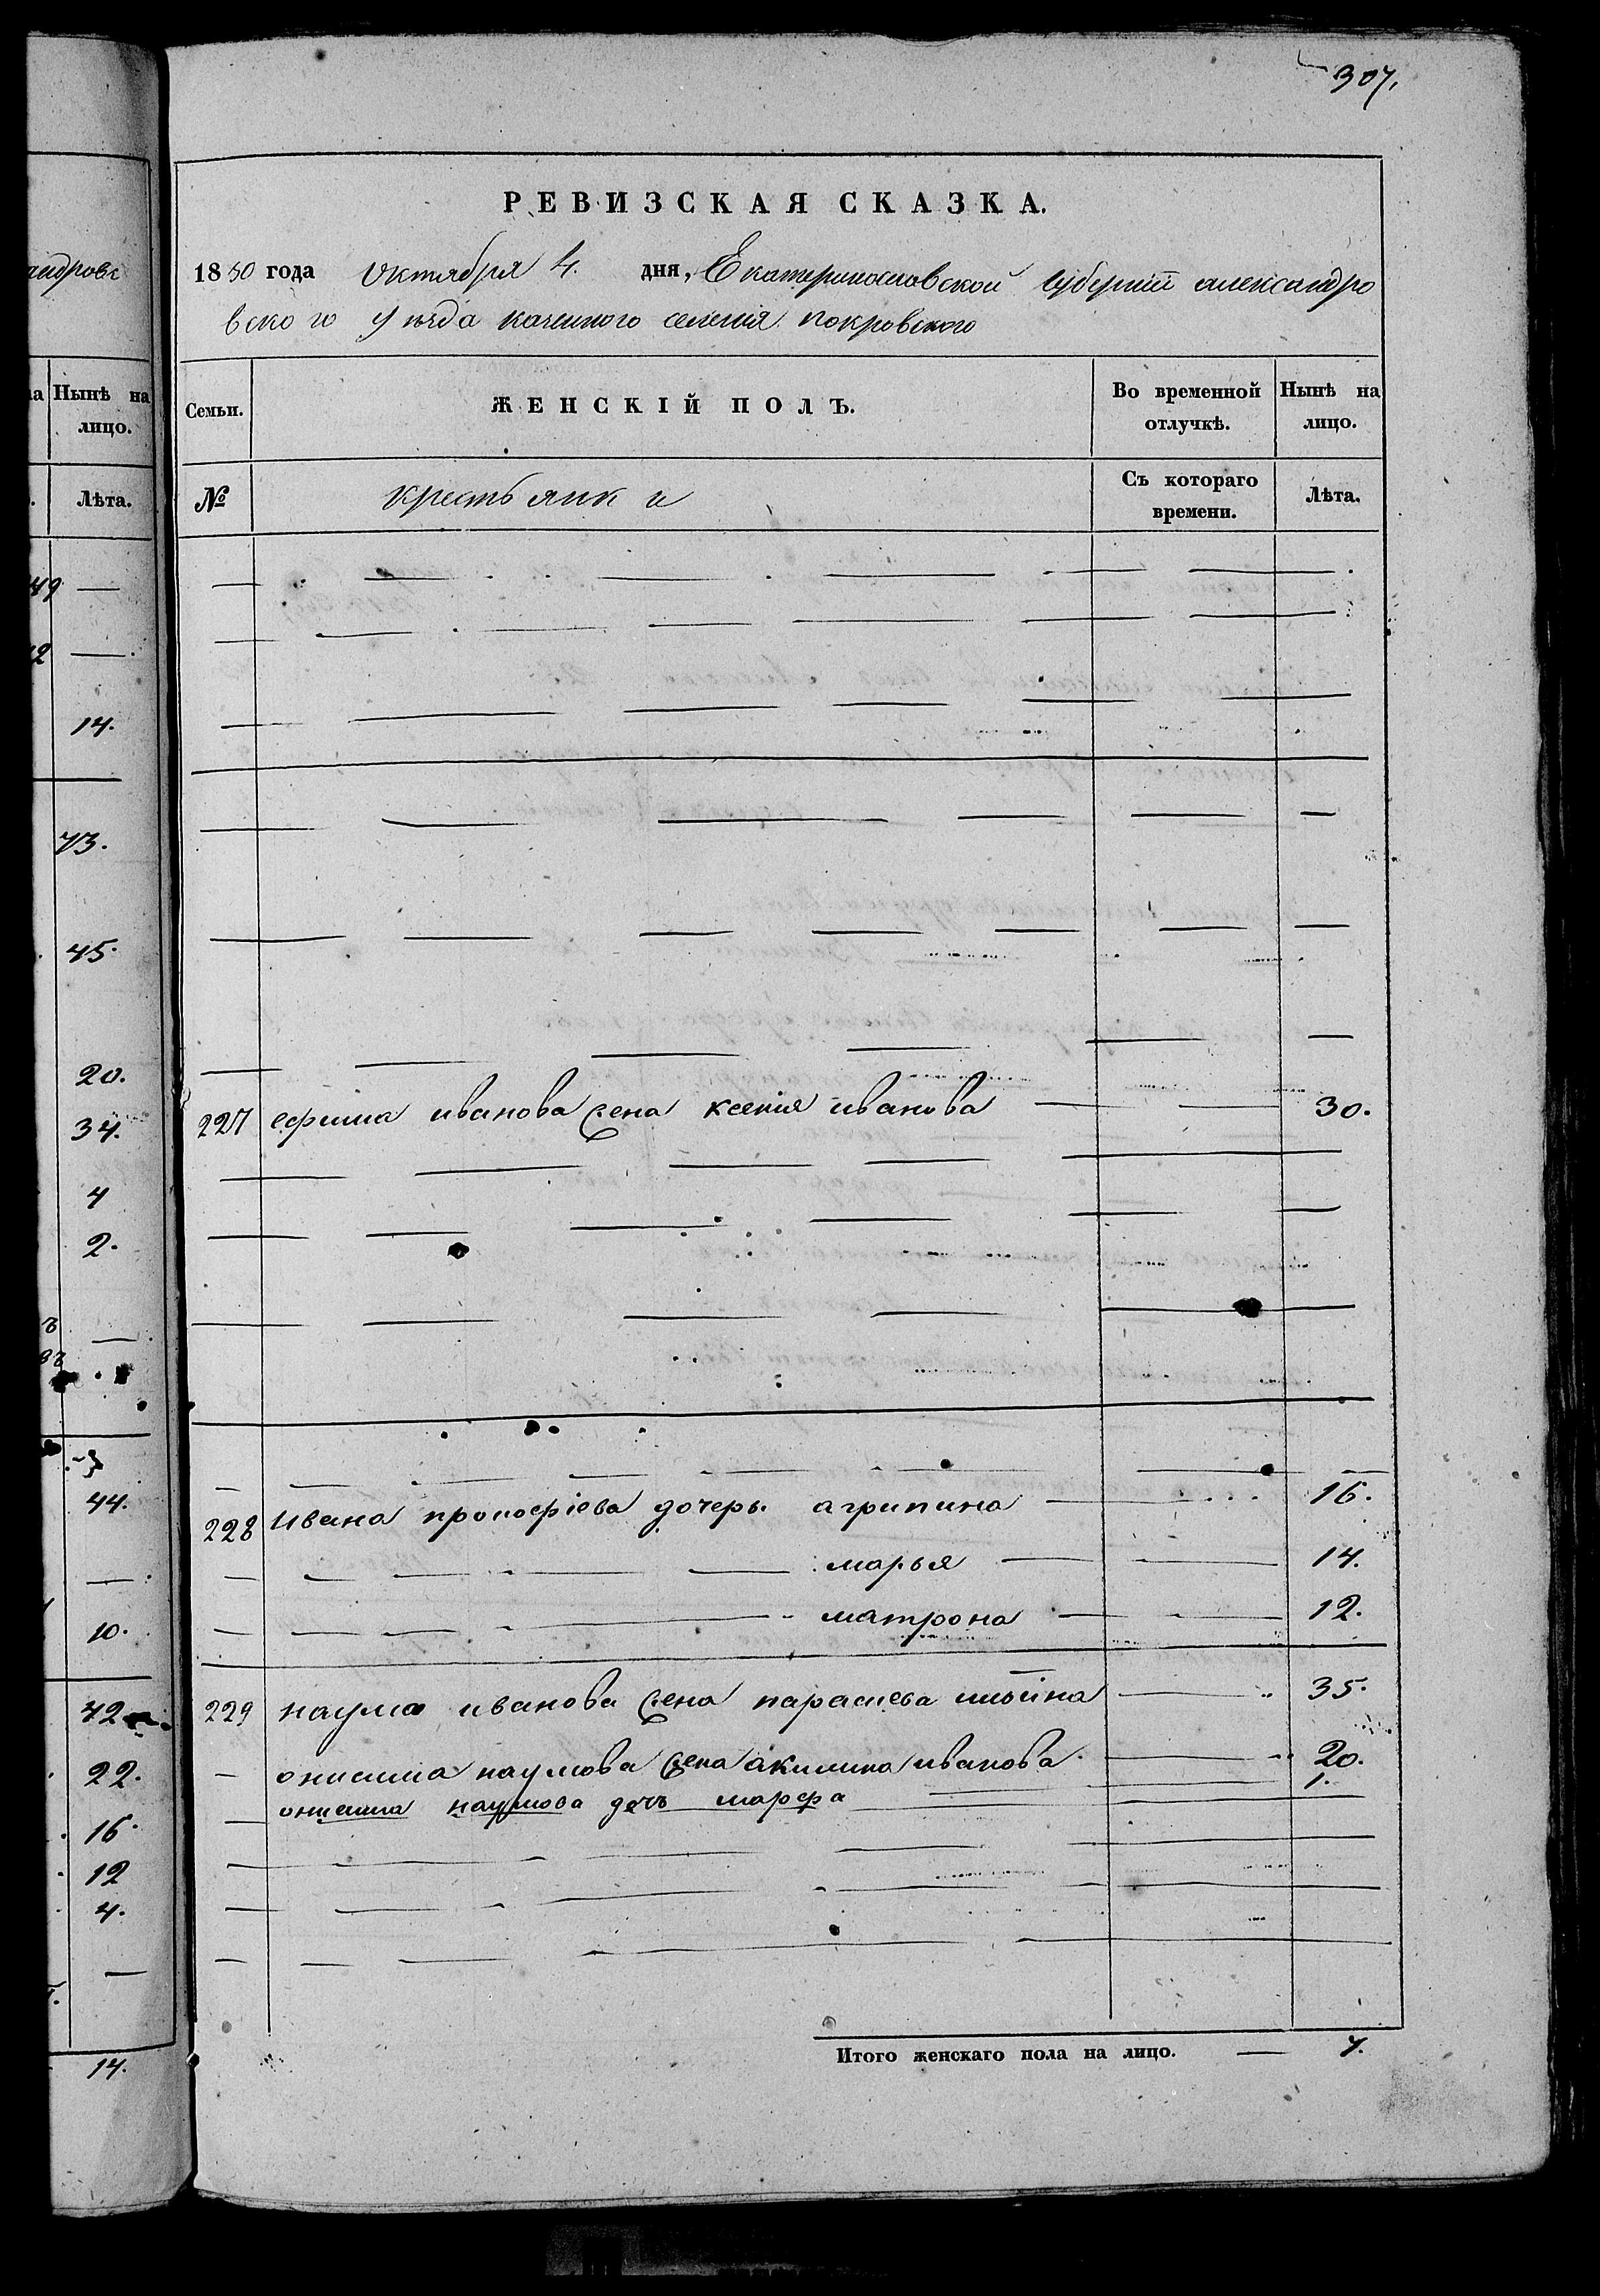 307.
РЕВИЗСКАЯ СКАЗКА.
1850 года октября 4. дня, Екатеринославской губернии александро
вского уезда казенного селения покровского
Семьи.
ЖЕНСКІЙ ПОЛЪ.
Во временной отлучкѣ.
Нынѣ на лицо.
№
крестьянки
Съ котораго времени.
Лѣта.
227 ефима иванова жена ксения иванова — 30.
228 ивана прокофіева дочерь. агрипина — 16.
— марья — 14.
— матрона — 12.
229 наума иванова жена параскева ильина — 35.
— онисима наумова жена акилина иванова — 20.
онисима наумова дочь марфа — 1.
Итого женскаго пола на лицо. — 7.
Нынѣ на лицо.
Лѣта.
49 —
12 —
14.
73.
45.
20.
34.
4
2.
44.
10.
42
22.
16.
12
4.
14.